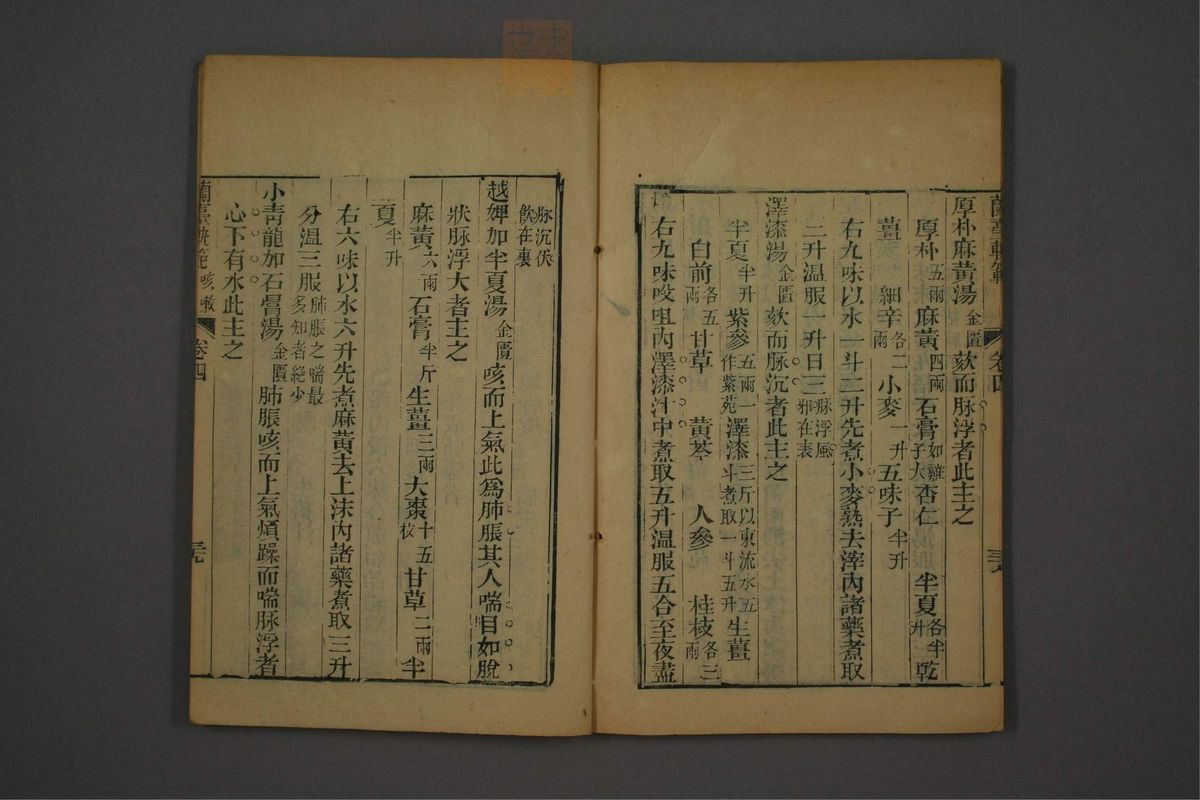 蘭臺軌範 卷四 三十八
厚朴麻黃湯金匱欬而脉浮者此主之
厚朴五兩麻黃四兩石膏如雞子大杏仁 半夏各半升乾
薑 細辛各二兩小麥一升五味子半升
右九味以水一斗二升先煮小麥熟去滓內諸藥煮取
三升温服一升日三脉浮風邪在表
澤漆湯金匱欬而脉沉者此主之
半夏半升紫參五兩一作紫菀澤漆三斤以東流水五斗煮取一斗五升生薑
白前各五兩甘草 黃芩 人參 桂枝各三兩
右九味㕮咀內澤漆汁中煮取五升温服五合至夜盡
脉沉伏飲在裏
越婢加半夏湯金匱咳而上氣此爲肺脹其人喘目如脫
狀脉浮大者主之
麻黃六兩石膏半斤生薑三兩大棗十五枚甘草二兩半
夏半升
右六味以水六升先煮麻黃去上沫內諸藥煮取三升
分温三服肺脹之喘最多知者絕少
小青龍加石膏湯金匱肺脹咳而上氣煩躁而喘脉浮者
心下有水此主之
蘭臺軌範 咳嗽 卷四 三十九